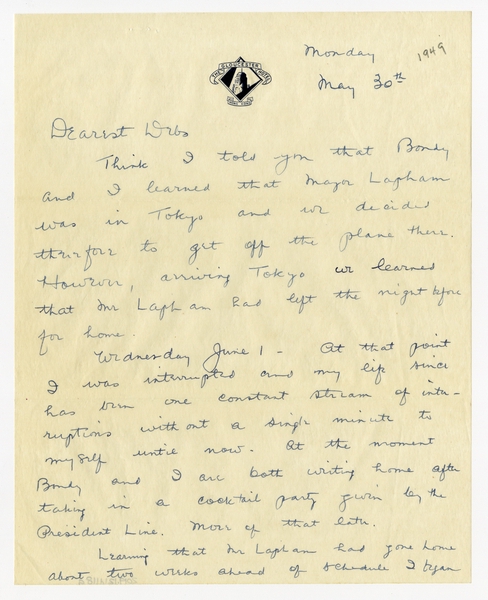 THE GLOUCESTER HOTEL
Monday 1949
May 30th
Dearest Debs
Think I told you that Bondy
and I learned that Mayor Lapham
was in Tokyo and we decided
therefore to get off the plane there.
However, arriving Tokyo we learned
that Mr Lapham had left the night before
for home.
Wednesday June 1 - At that point
I was interrupted and my life since
has been one constant stream of inter-
ruptions without a single minute to
myself until now. At the moment
Bondy and I are both writing home after
taking in a cocktail party given by the
President Line. More of that later.
Learning that Mr Lapham had gone home
about two weeks ahead of schedule I began